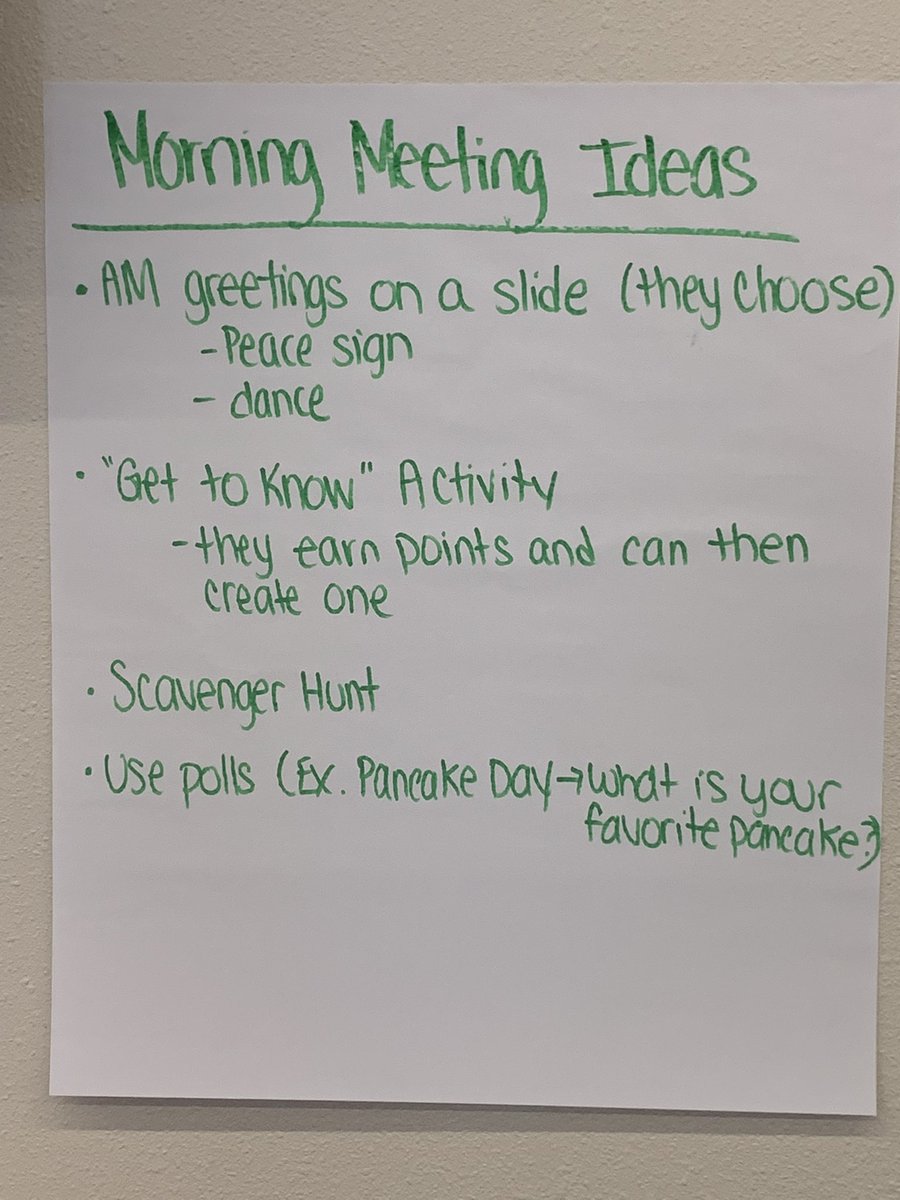 Morning Meeting Ideas
• AM greetings on a slide (they choose)
- Peace sign
- dance
• "Get to Know" Activity
- they earn points and can then
create one
• Scavenger Hunt
• Use polls (Ex. Pancake Day → What is your
favorite pancake?)